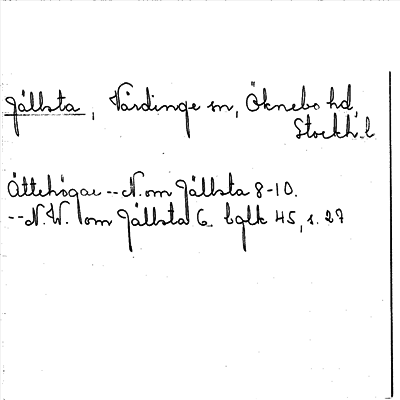 Jållsta, Vårdinge sn, Öknebo hd,
Stockh. l.
Ättehögar -- N. om Jållsta 8-10.
-- N.W. om Jållsta 6. bglk 45, s. 27